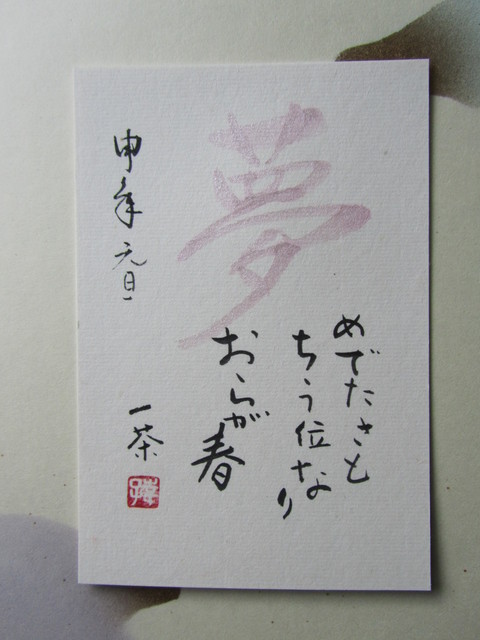 夢
めでたさも
ちう位なり
おらが春
一茶
申年元旦